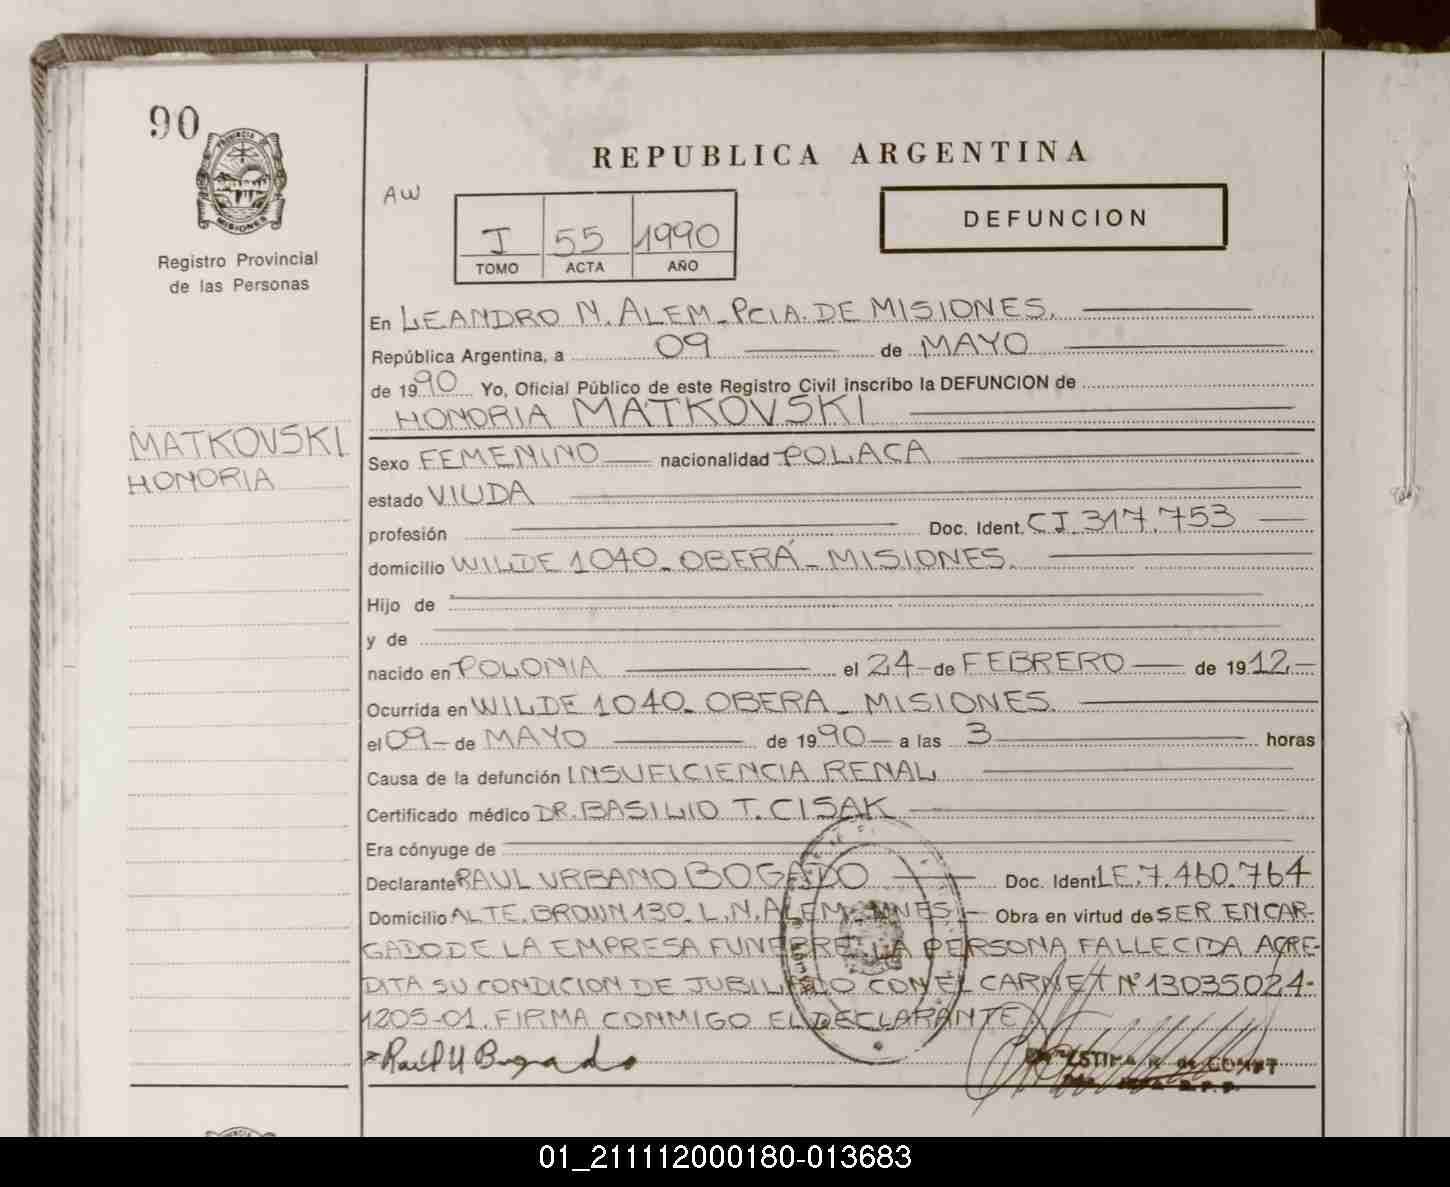 90
PROVINCIA DE
MISIONES
Registro Provincial
de las Personas
MATKOVSKI
HONORIA
REPUBLICA ARGENTINA
AW
I 55 1990
TOMO ACTA AÑO
DEFUNCION
En LEANDRO N. ALEM - PCIA. DE MISIONES.
República Argentina, a 09 de MAYO
de 1990 Yo, Oficial Público de este Registro Civil inscribo la DEFUNCION de
HONORIA MATKOVSKI
Sexo FEMENINO nacionalidad POLACA
estado VIUDA
profesión Doc. Ident. CI. 317.753
domicilio WILDE 1040 - OBERÁ - MISIONES.
Hijo de
y de
nacido en POLONIA el 24 de FEBRERO de 1912.
Ocurrida en WILDE 1040 - OBERA - MISIONES.
el 09 de MAYO de 1990 a las 3 horas
Causa de la defunción INSUFICIENCIA RENAL
Certificado médico DR. BASILIO T. CISAK
Era cónyuge de
Declarante RAUL URBANO BOGADO Doc. Ident LE. 7.460.764
Domicilio ALTE. BROWN 130 - L.N. ALEM - MNES. - Obra en virtud de SER ENCAR-
GADO DE LA EMPRESA FUNEBRE. LA PERSONA FALLECIDA ACRE-
DITA SU CONDICION DE JUBILADO CON EL CARNET Nº 13035024-
1205-01. FIRMA CONMIGO EL DECLARANTE
Raúl U Bogado
01_211112000180-013683